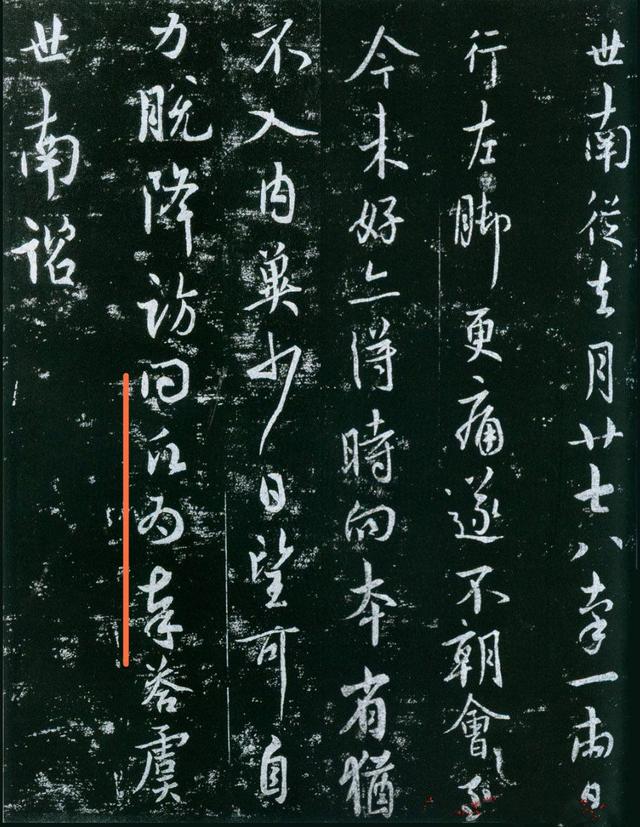 世南從去月廿七八率一兩日
行左脚更痛遂不朝會至
今未好亦得時向本省猶
不入内冀少日望可自
力脱降訪問為奉答虞
世南諮